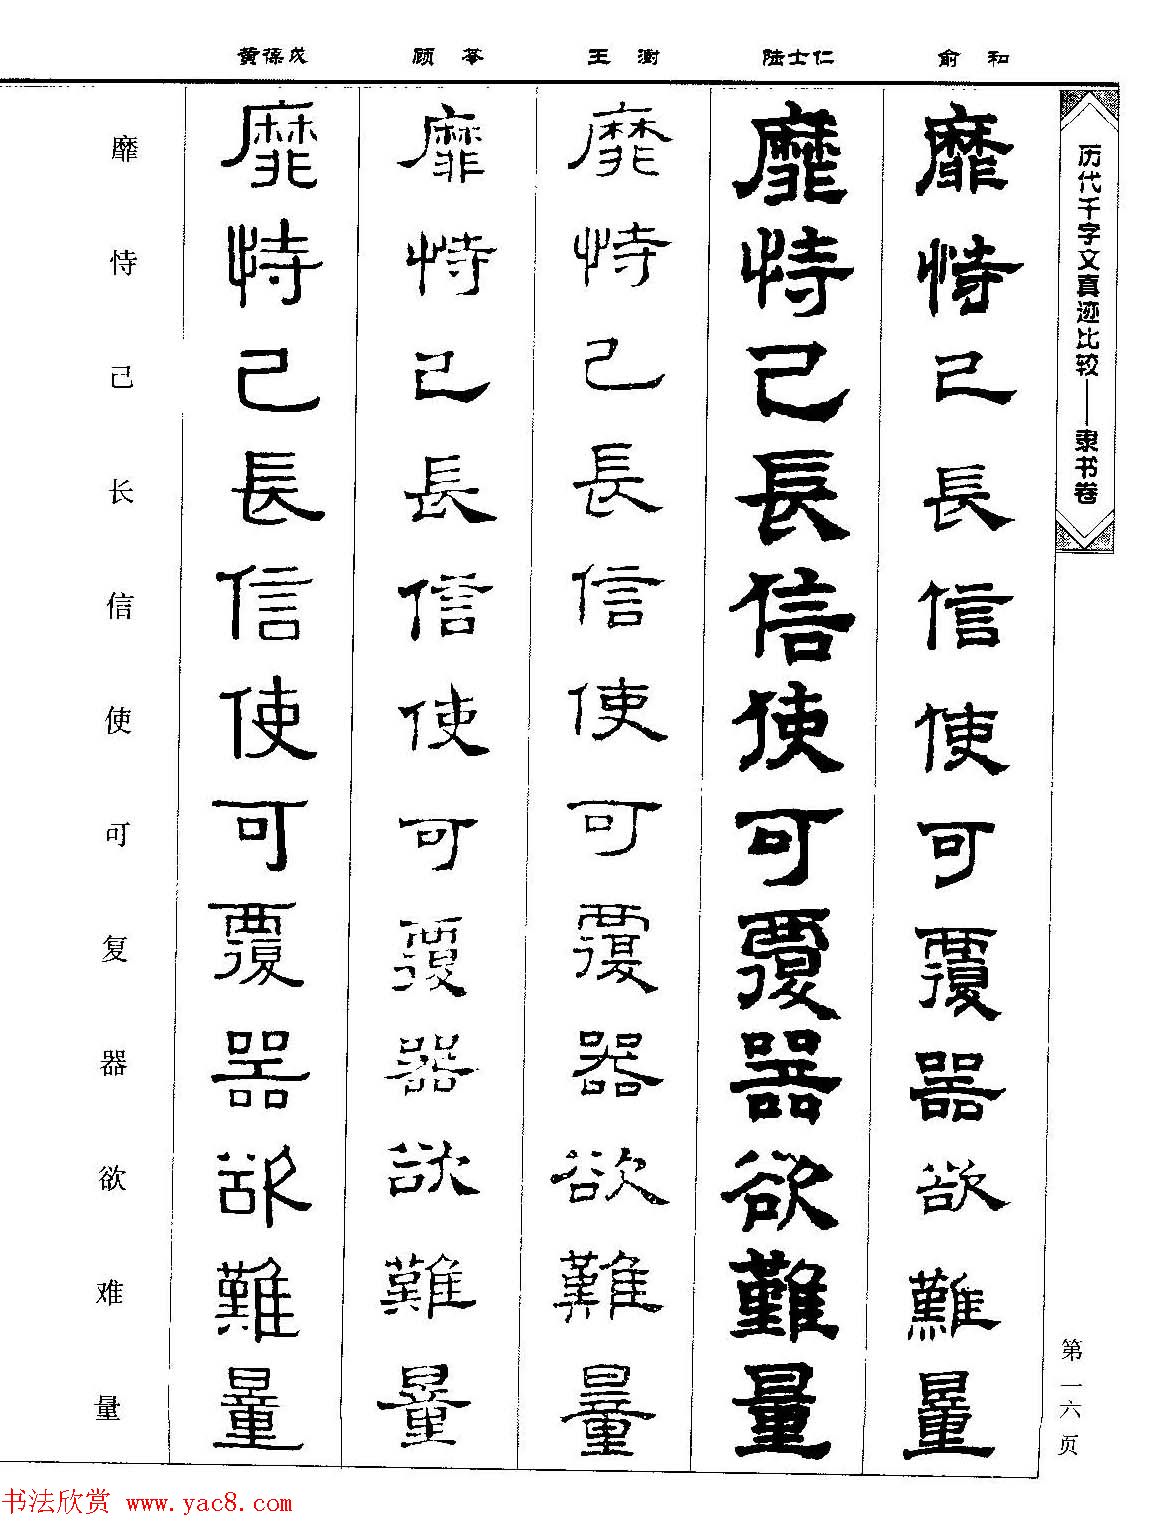 历代千字文真迹比较——隶书卷
第一六页
俞和
靡恃己長信使可覆器欲難量
陆士仁
靡恃己長信使可覆器欲難量
王澍
靡恃己長信使可覆器欲難量
顾苓
靡恃己長信使可覆器欲難量
黄葆戉
靡恃己長信使可覆器欲難量
靡恃己长信使可复器欲难量
书法欣赏 www.yac8.com